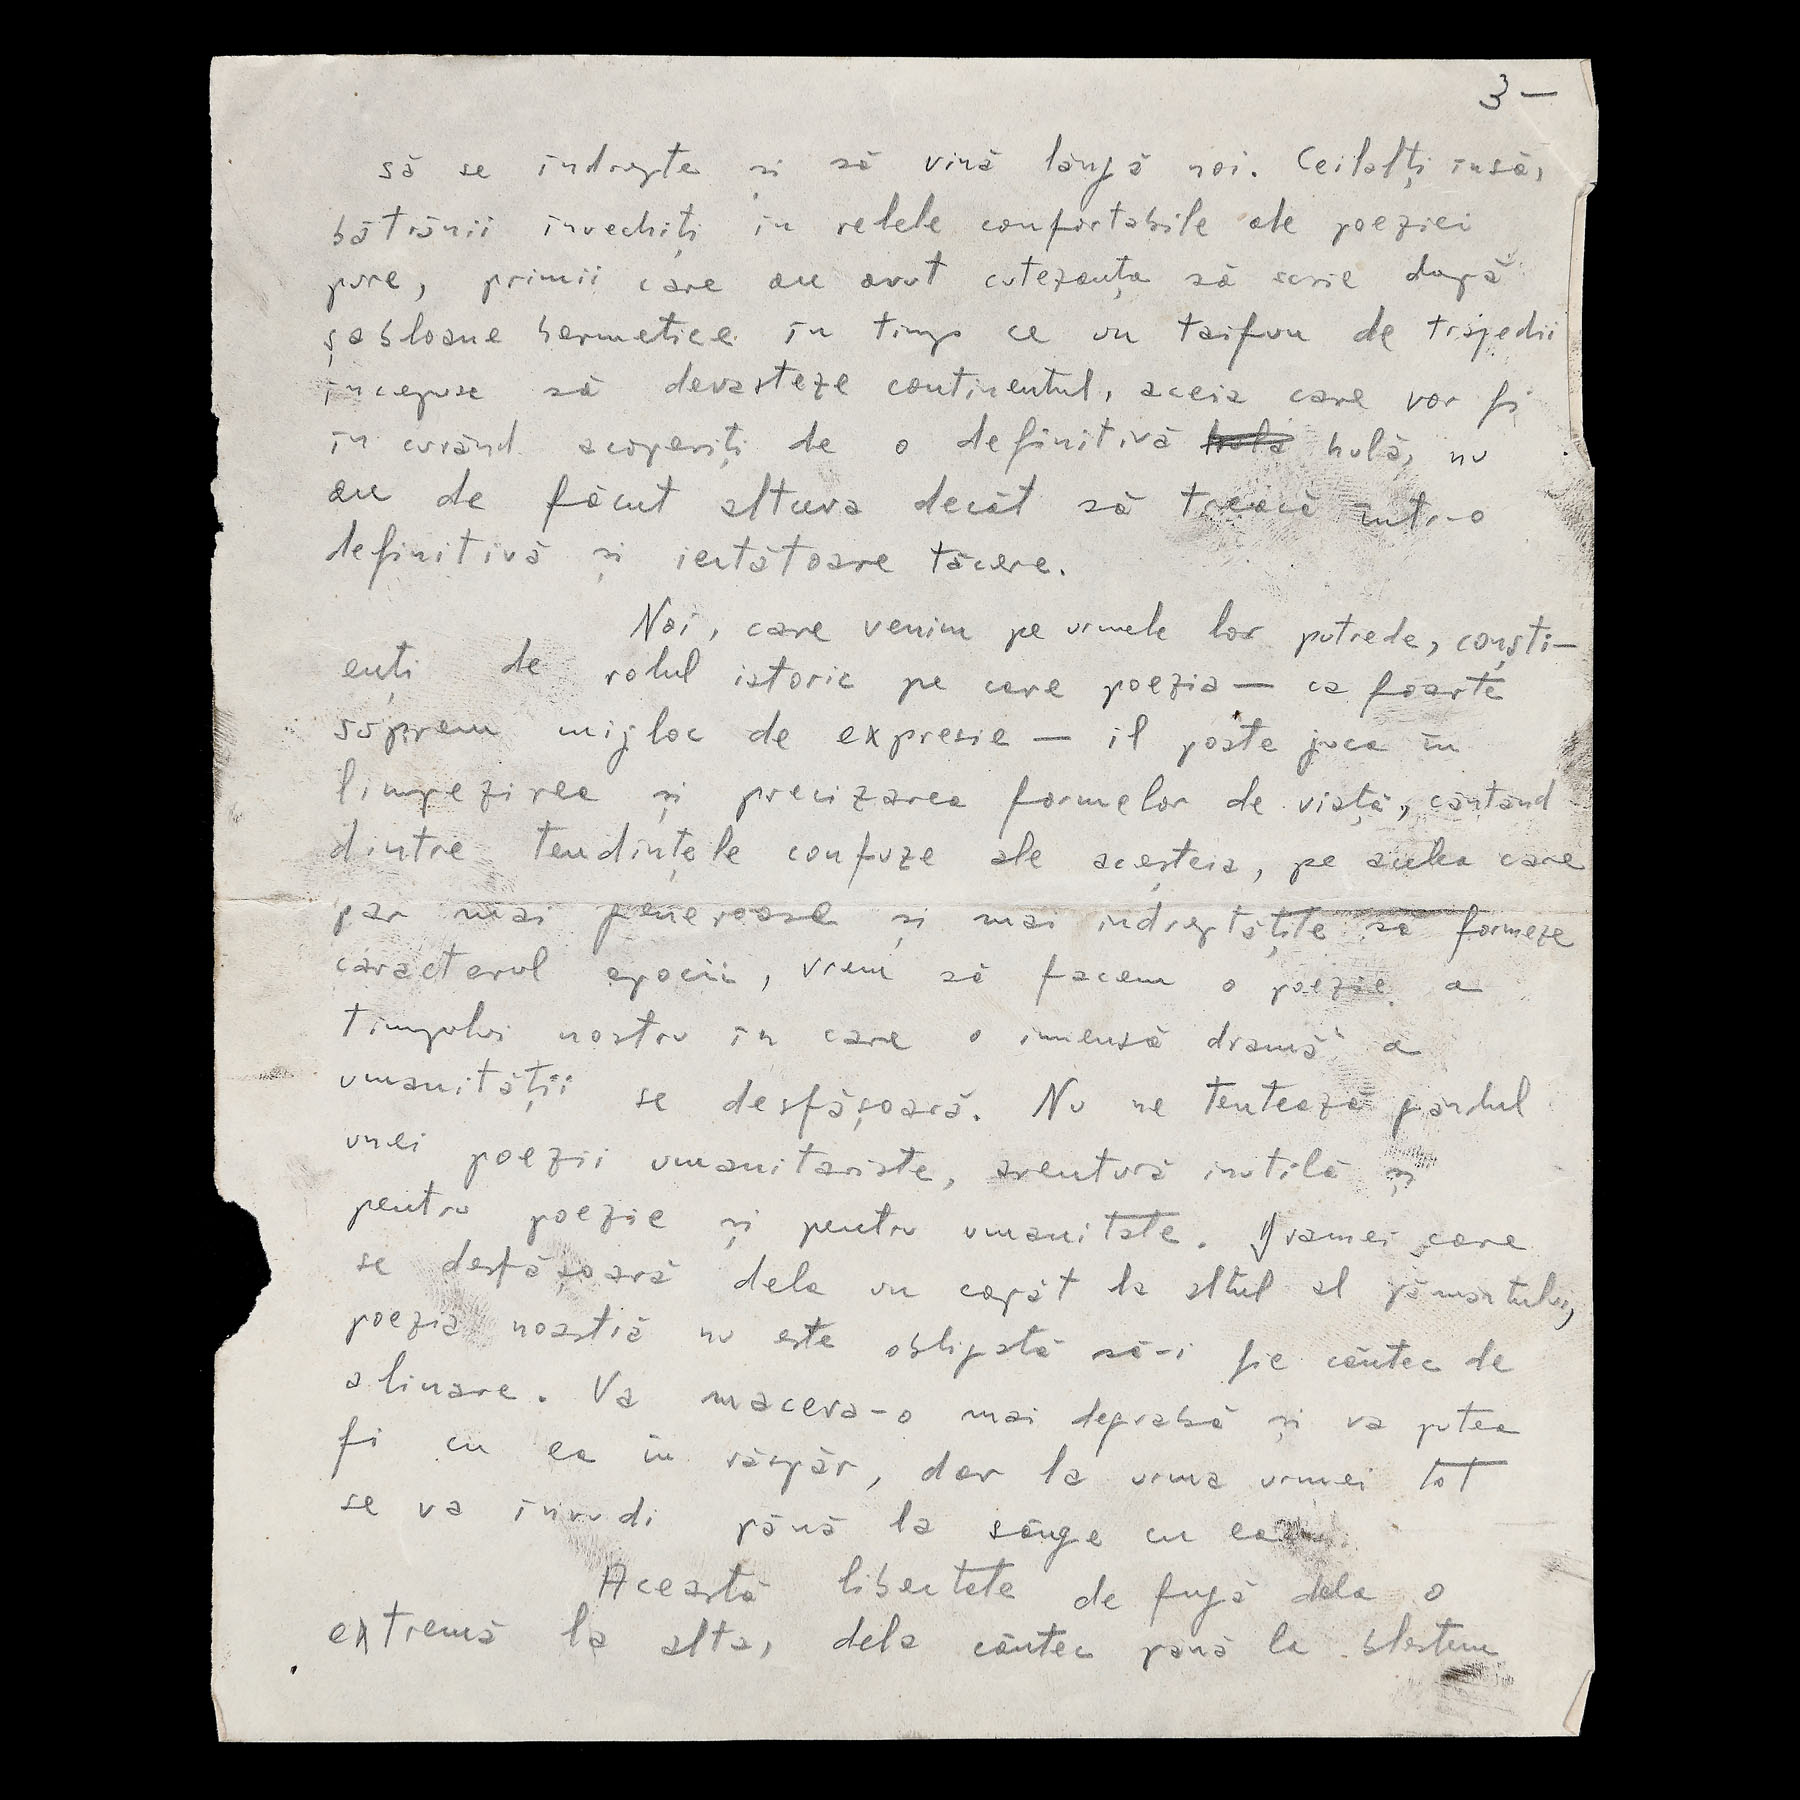 3 —
să se îndrepte și să vină lângă noi. Ceilalți însă,
bătrânii învechiți în relele confortabile ale poeziei
pure, primii care au avut cutezanța să scrie după
șabloane hermetice în timp ce un taifun de tragedii
începuse să devasteze continentul, aceia care vor fi
în curând acoperiți de o definitivă hulă, nu
au de făcut altceva decât să treacă într-o
definitivă și iertătoare tăcere.
Noi, care venim pe urmele lor putrede, conști-
enți de rolul istoric pe care poezia — ca foarte
suprem mijloc de expresie — îl poate juca în
limpezirea și precizarea formelor de viață, cântând
dintre tendințele confuze ale aceșteia, pe acelea care
par mai generoase și mai îndreptățite să formeze
caracterul epocii, vrem să facem o poezie a
timpului nostru în care o imensă dramă a
umanității se desfășoară. Nu ne tentează gândul
unei poezii umanitariste, aventură inutilă și
pentru poezie și pentru umanitate. Dramei care
se desfășoară dela un capăt la altul al pământului,
poezia noastră nu este obligată să-i fie cântec de
alinare. Va macera-o mai degrabă și va putea
fi cu ea în răspăr, dar la urma urmei tot
se va înrudi până la sânge cu ea
Această libertate de fugă dela o
extremă la alta, dela cântec până la blestem